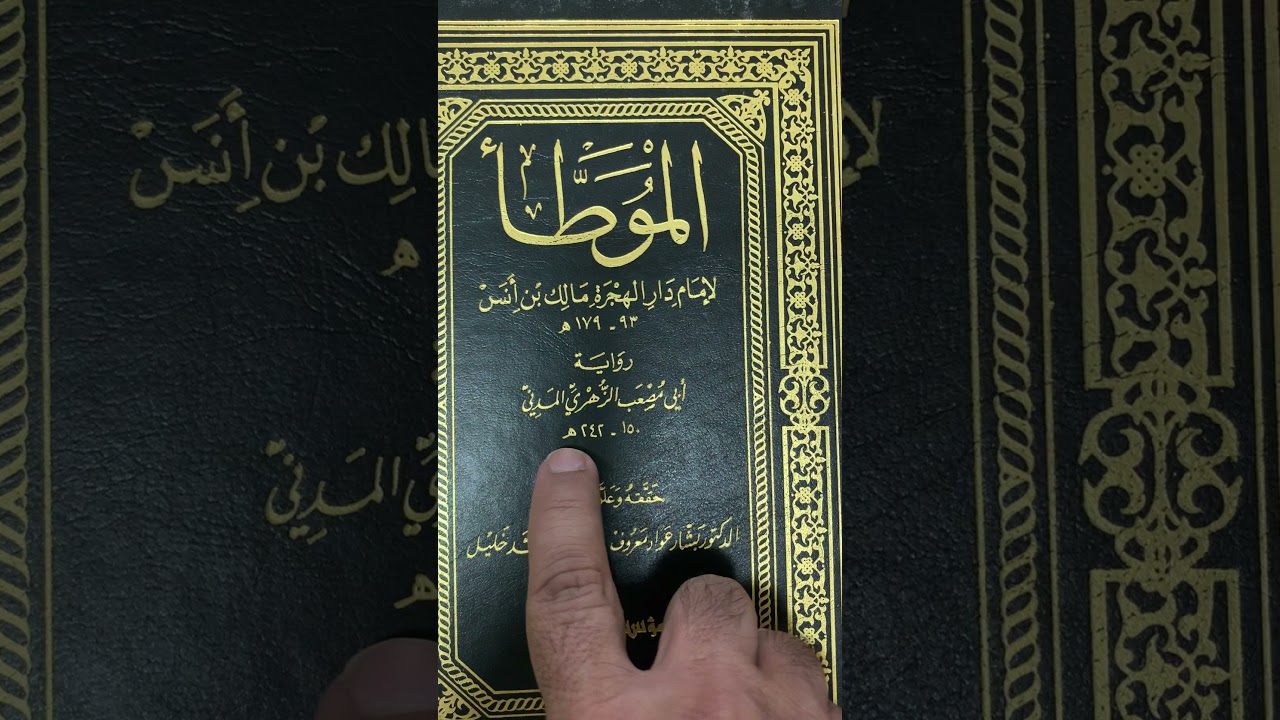 الموطأ
لإمام دار الهجرة مالك بن أنس
٩٣ - ١٧٩ هـ
رواية
أبي مصعب الزهري المدني
١٥٠ - ٢٤٢ هـ
حققه
الدكتور بشار عواد معروف خليل